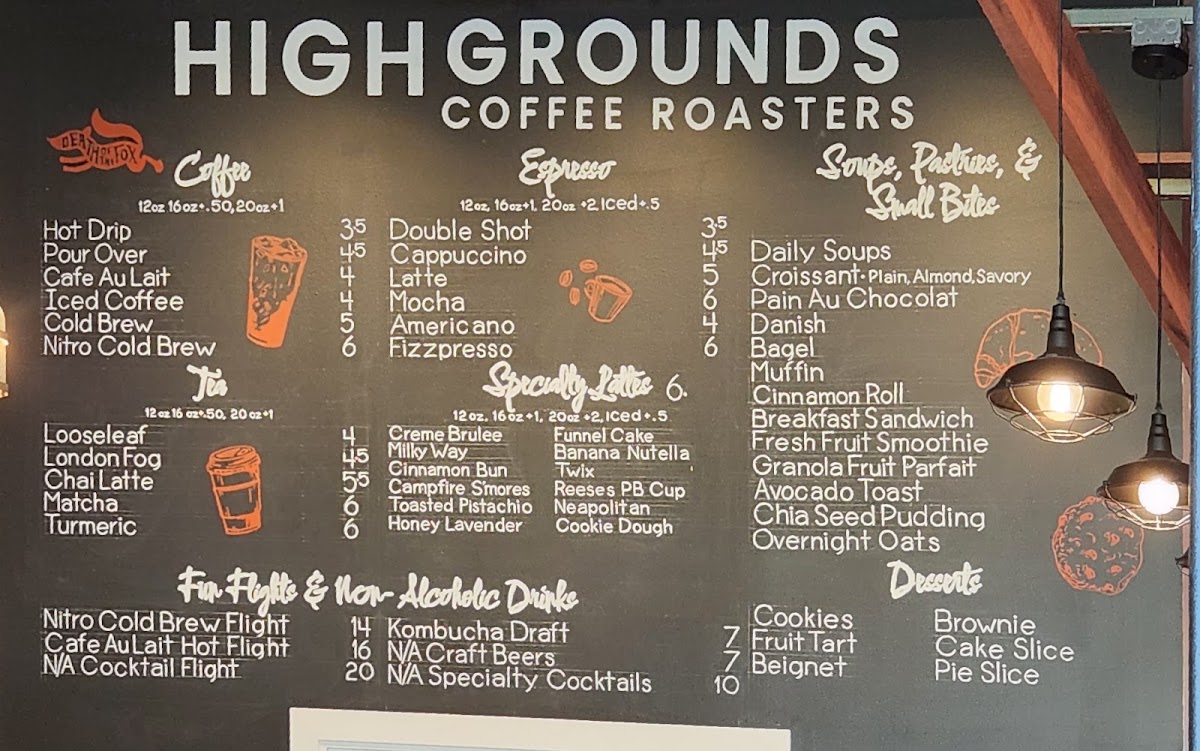 HIGH GROUNDS
COFFEE ROASTERS
DEATH OF THE FOX
Coffee
12oz 16oz+.50, 20oz+1
Hot Drip 3.5
Pour Over 4.5
Cafe Au Lait 4
Iced Coffee 4
Cold Brew 5
Nitro Cold Brew 6
Tea
12oz 16oz+.50, 20oz+1
Looseleaf 4
London Fog 4.5
Chai Latte 5.5
Matcha 6
Turmeric 6
Espresso
12oz, 16oz+1, 20oz +2, Iced+.5
Double Shot 3.5
Cappuccino 4.5
Latte 5
Mocha 6
Americano 4
Fizzpresso 6
Specialty Lattes 6.
12oz. 16oz+1, 20oz+2, Iced+.5
Creme Brulee Funnel Cake
Milky Way Banana Nutella
Cinnamon Bun Twix
Campfire S'mores Reeses PB Cup
Toasted Pistachio Neapolitan
Honey Lavender Cookie Dough
Soups, Pastries, &
Small Bites
Daily Soups
Croissant • Plain, Almond, Savory
Pain Au Chocolat
Danish
Bagel
Muffin
Cinnamon Roll
Breakfast Sandwich
Fresh Fruit Smoothie
Granola Fruit Parfait
Avocado Toast
Chia Seed Pudding
Overnight Oats
Fun Flights & Non-Alcoholic Drinks
Nitro Cold Brew Flight 14
Cafe Au Lait Hot Flight 16
N/A Cocktail Flight 20
Kombucha Draft 7
N/A Craft Beers 7
N/A Specialty Cocktails 10
Desserts
Cookies Brownie
Fruit Tart Cake Slice
Beignet Pie Slice